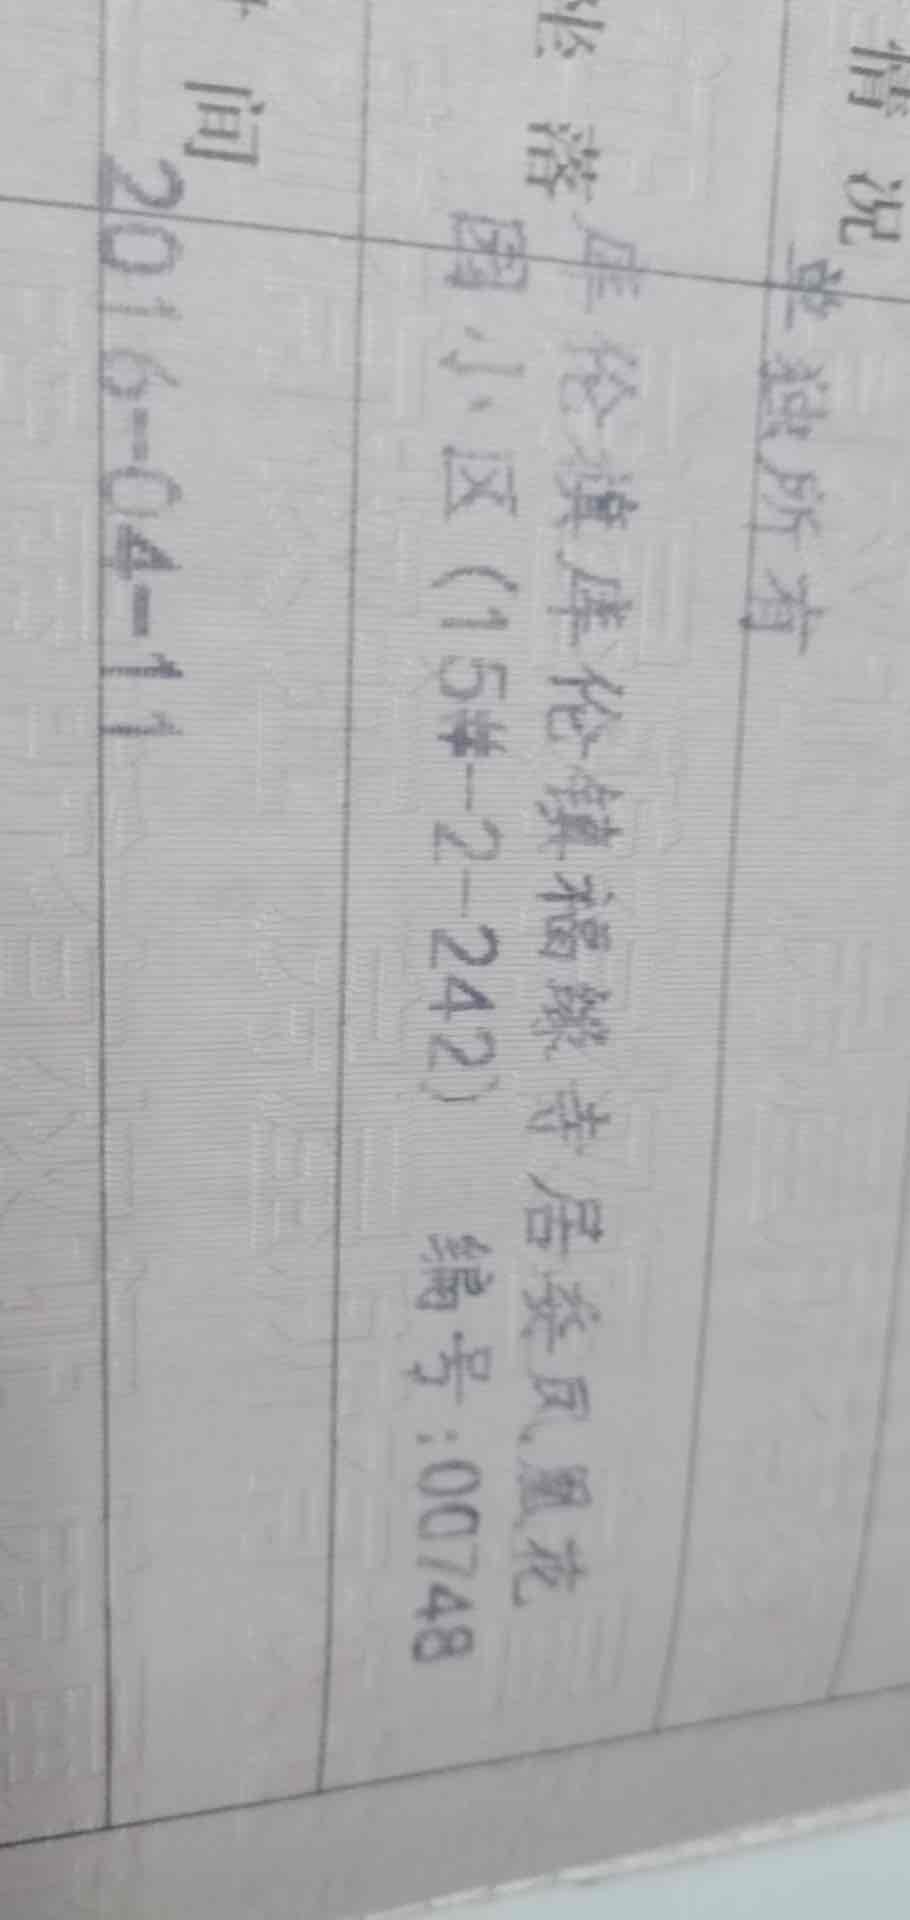 情况
单独所有
坐落
库伦旗库伦镇福缘寺居委凤凰花
园小区(15#-2-242) 编号:00748
间
2016-04-11